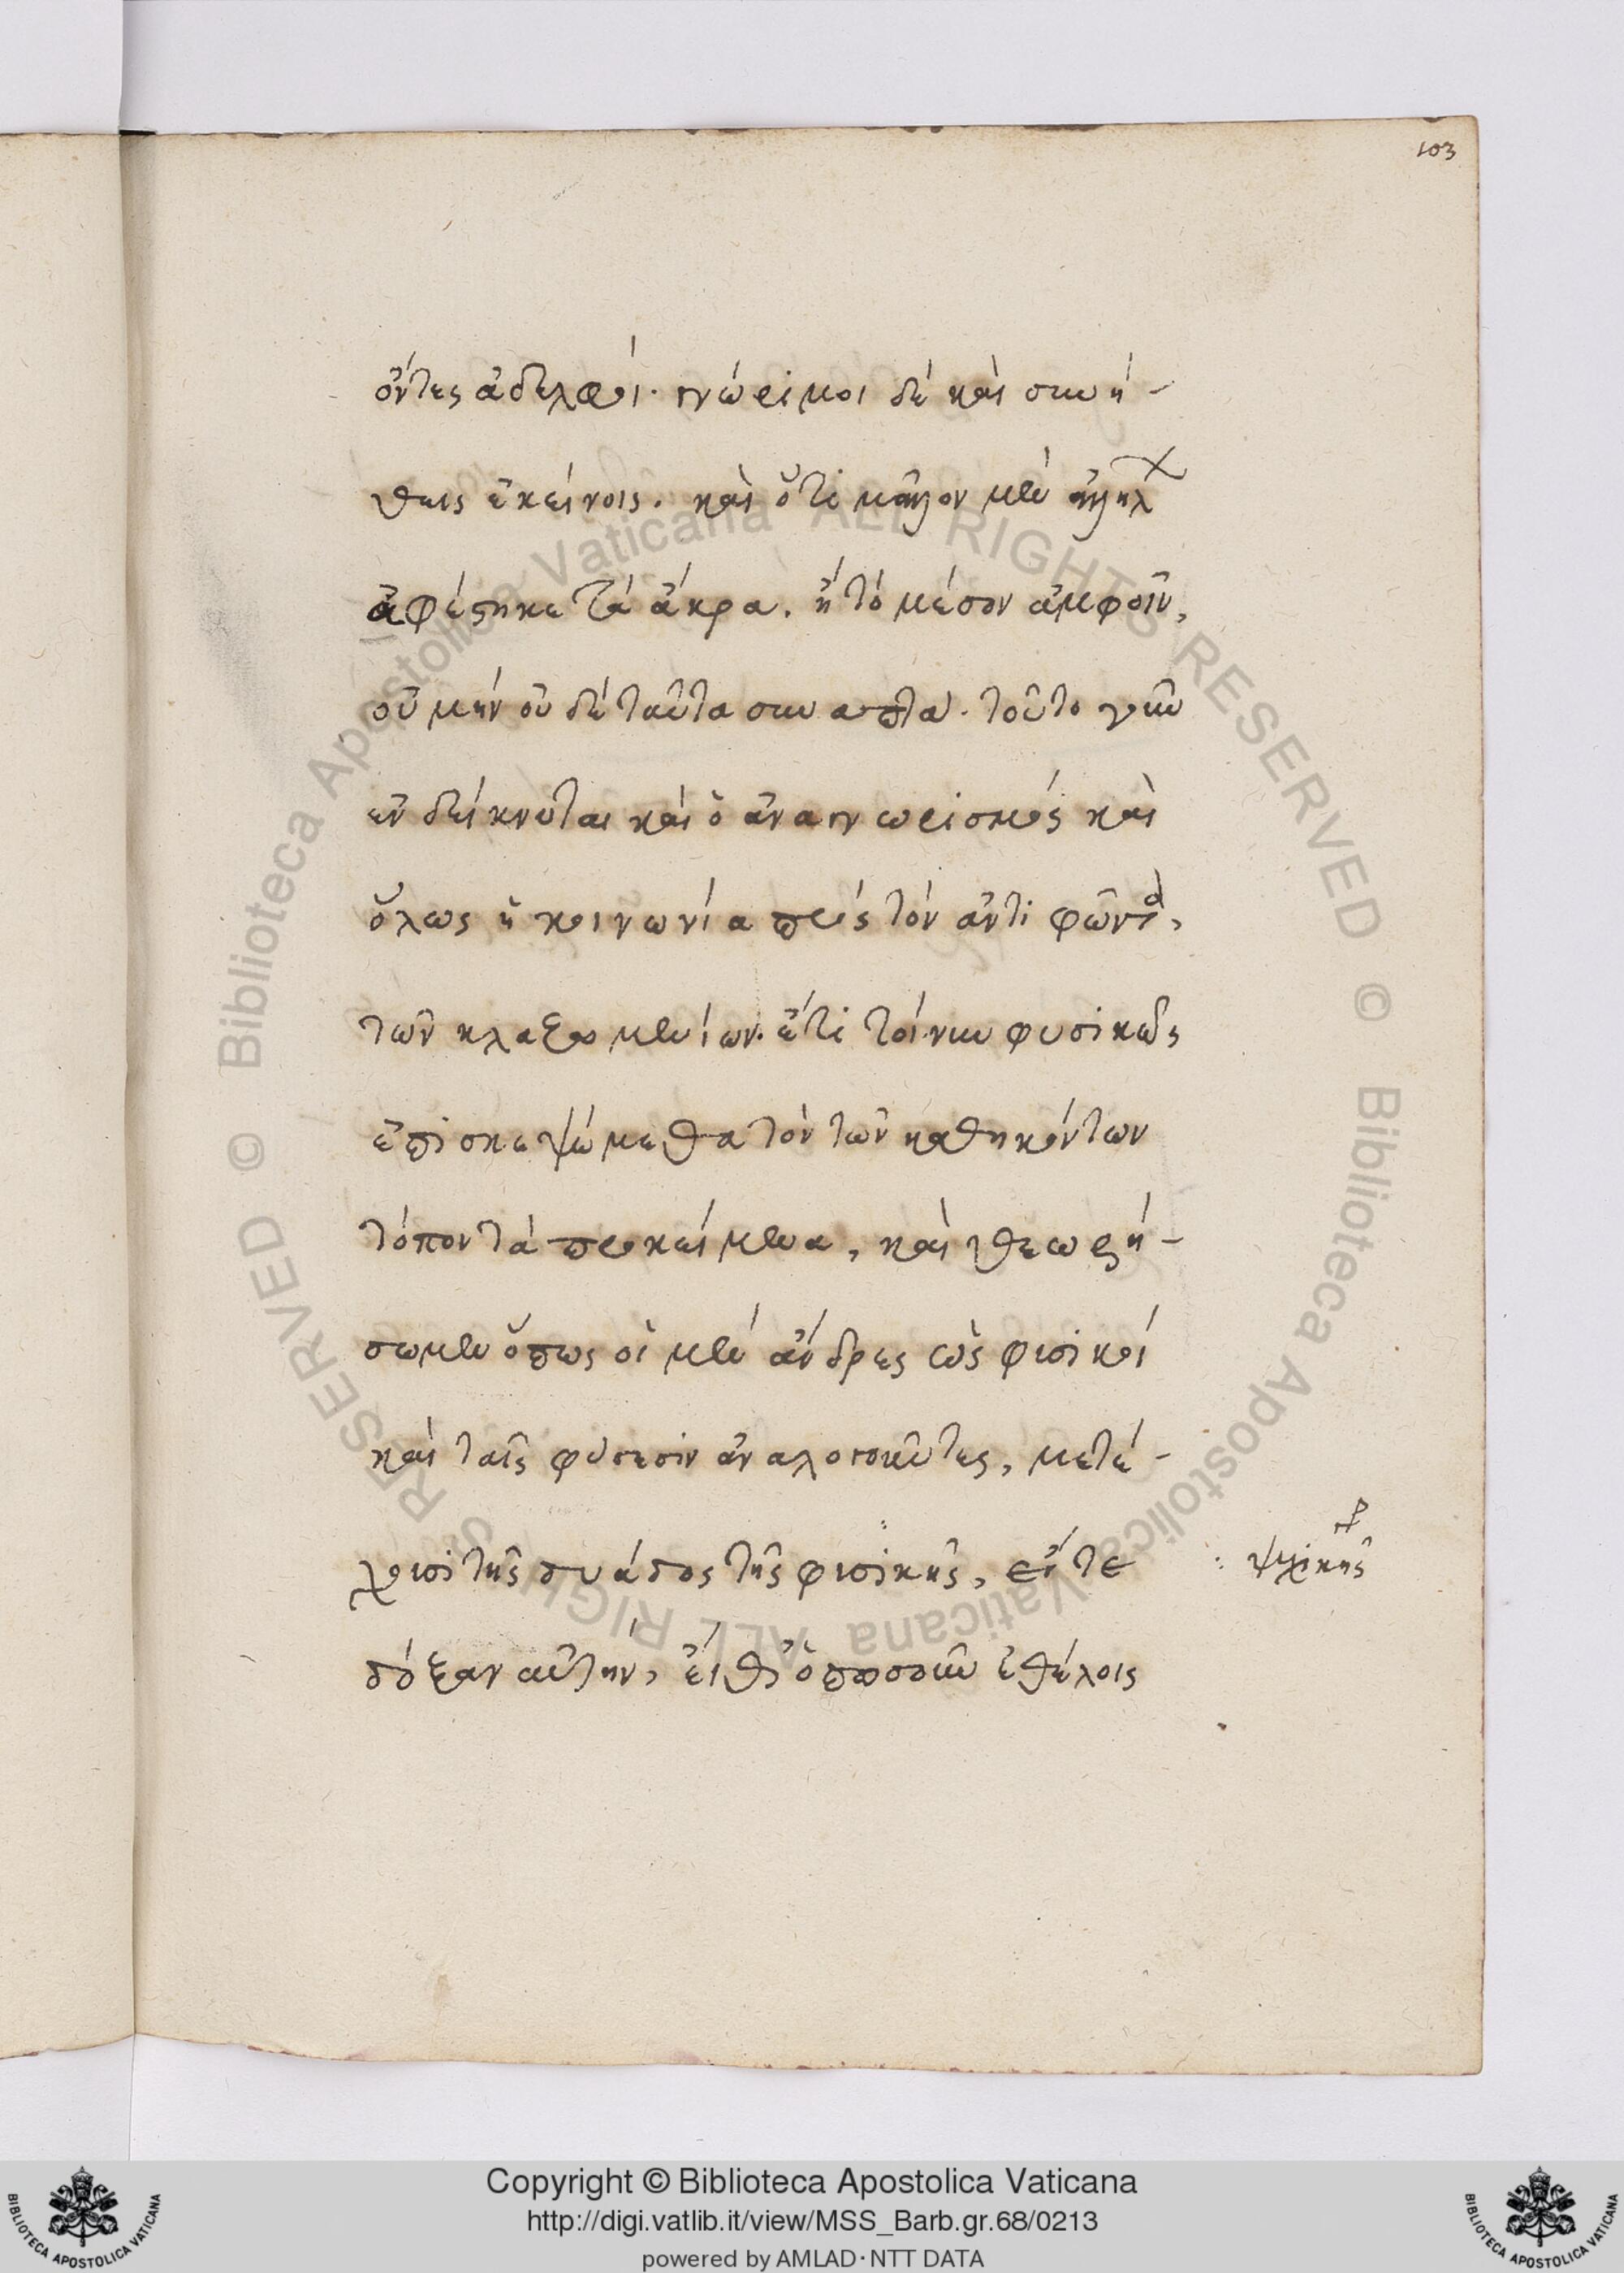 103
ὄντες ἀδελφοί. γνώριμοι δὲ καὶ συνή-
θεις ἐκείνοις. καὶ ὅτι μᾶλλον μὲν ἀλλήλ
ἀφέστηκε τὰ ἄκρα. ἢ τὸ μέσον ἀμφοῖν,
οὐ μὴν οὐδὲ ταῦτα συναπτά. τοῦτο γοῦν
ἐνδείκνυται καὶ ὁ ἀναγνωρισμός καὶ
ὅλως ἡ κοινωνία πρὸς τὸν ἀντιφῶντα,
τῶν κλαζομενίων. ἔτι τοίνυν φυσικῶς
ἐπισκεψώμεθα τὸν τῶν καθηκόντων
τόπον τὰ προκείμενα, καὶ θεωρή-
σωμεν ὅπως οἱ μὲν ἄνδρες ὡς φυσικοί
καὶ ταῖς φύσεσιν ἀναλογοῦντες, μετέ-
χουσι τῆς δυάδος τῆς φυσικῆς, εἴτε
ψυχικῆς
δόξαν αὐτήν, εἴθ' ὁπωσοῦν ἐθέλοις
© Biblioteca Apostolica Vaticana ALL RIGHTS RESERVED © Biblioteca Apostolica Vaticana ALL RIGHTS RESERVED
Copyright © Biblioteca Apostolica Vaticana
http://digi.vatlib.it/view/MSS_Barb.gr.68/0213
powered by AMLAD·NTT DATA
BIBLIOTECA APOSTOLICA VATICANA
BIBLIOTECA APOSTOLICA VATICANA